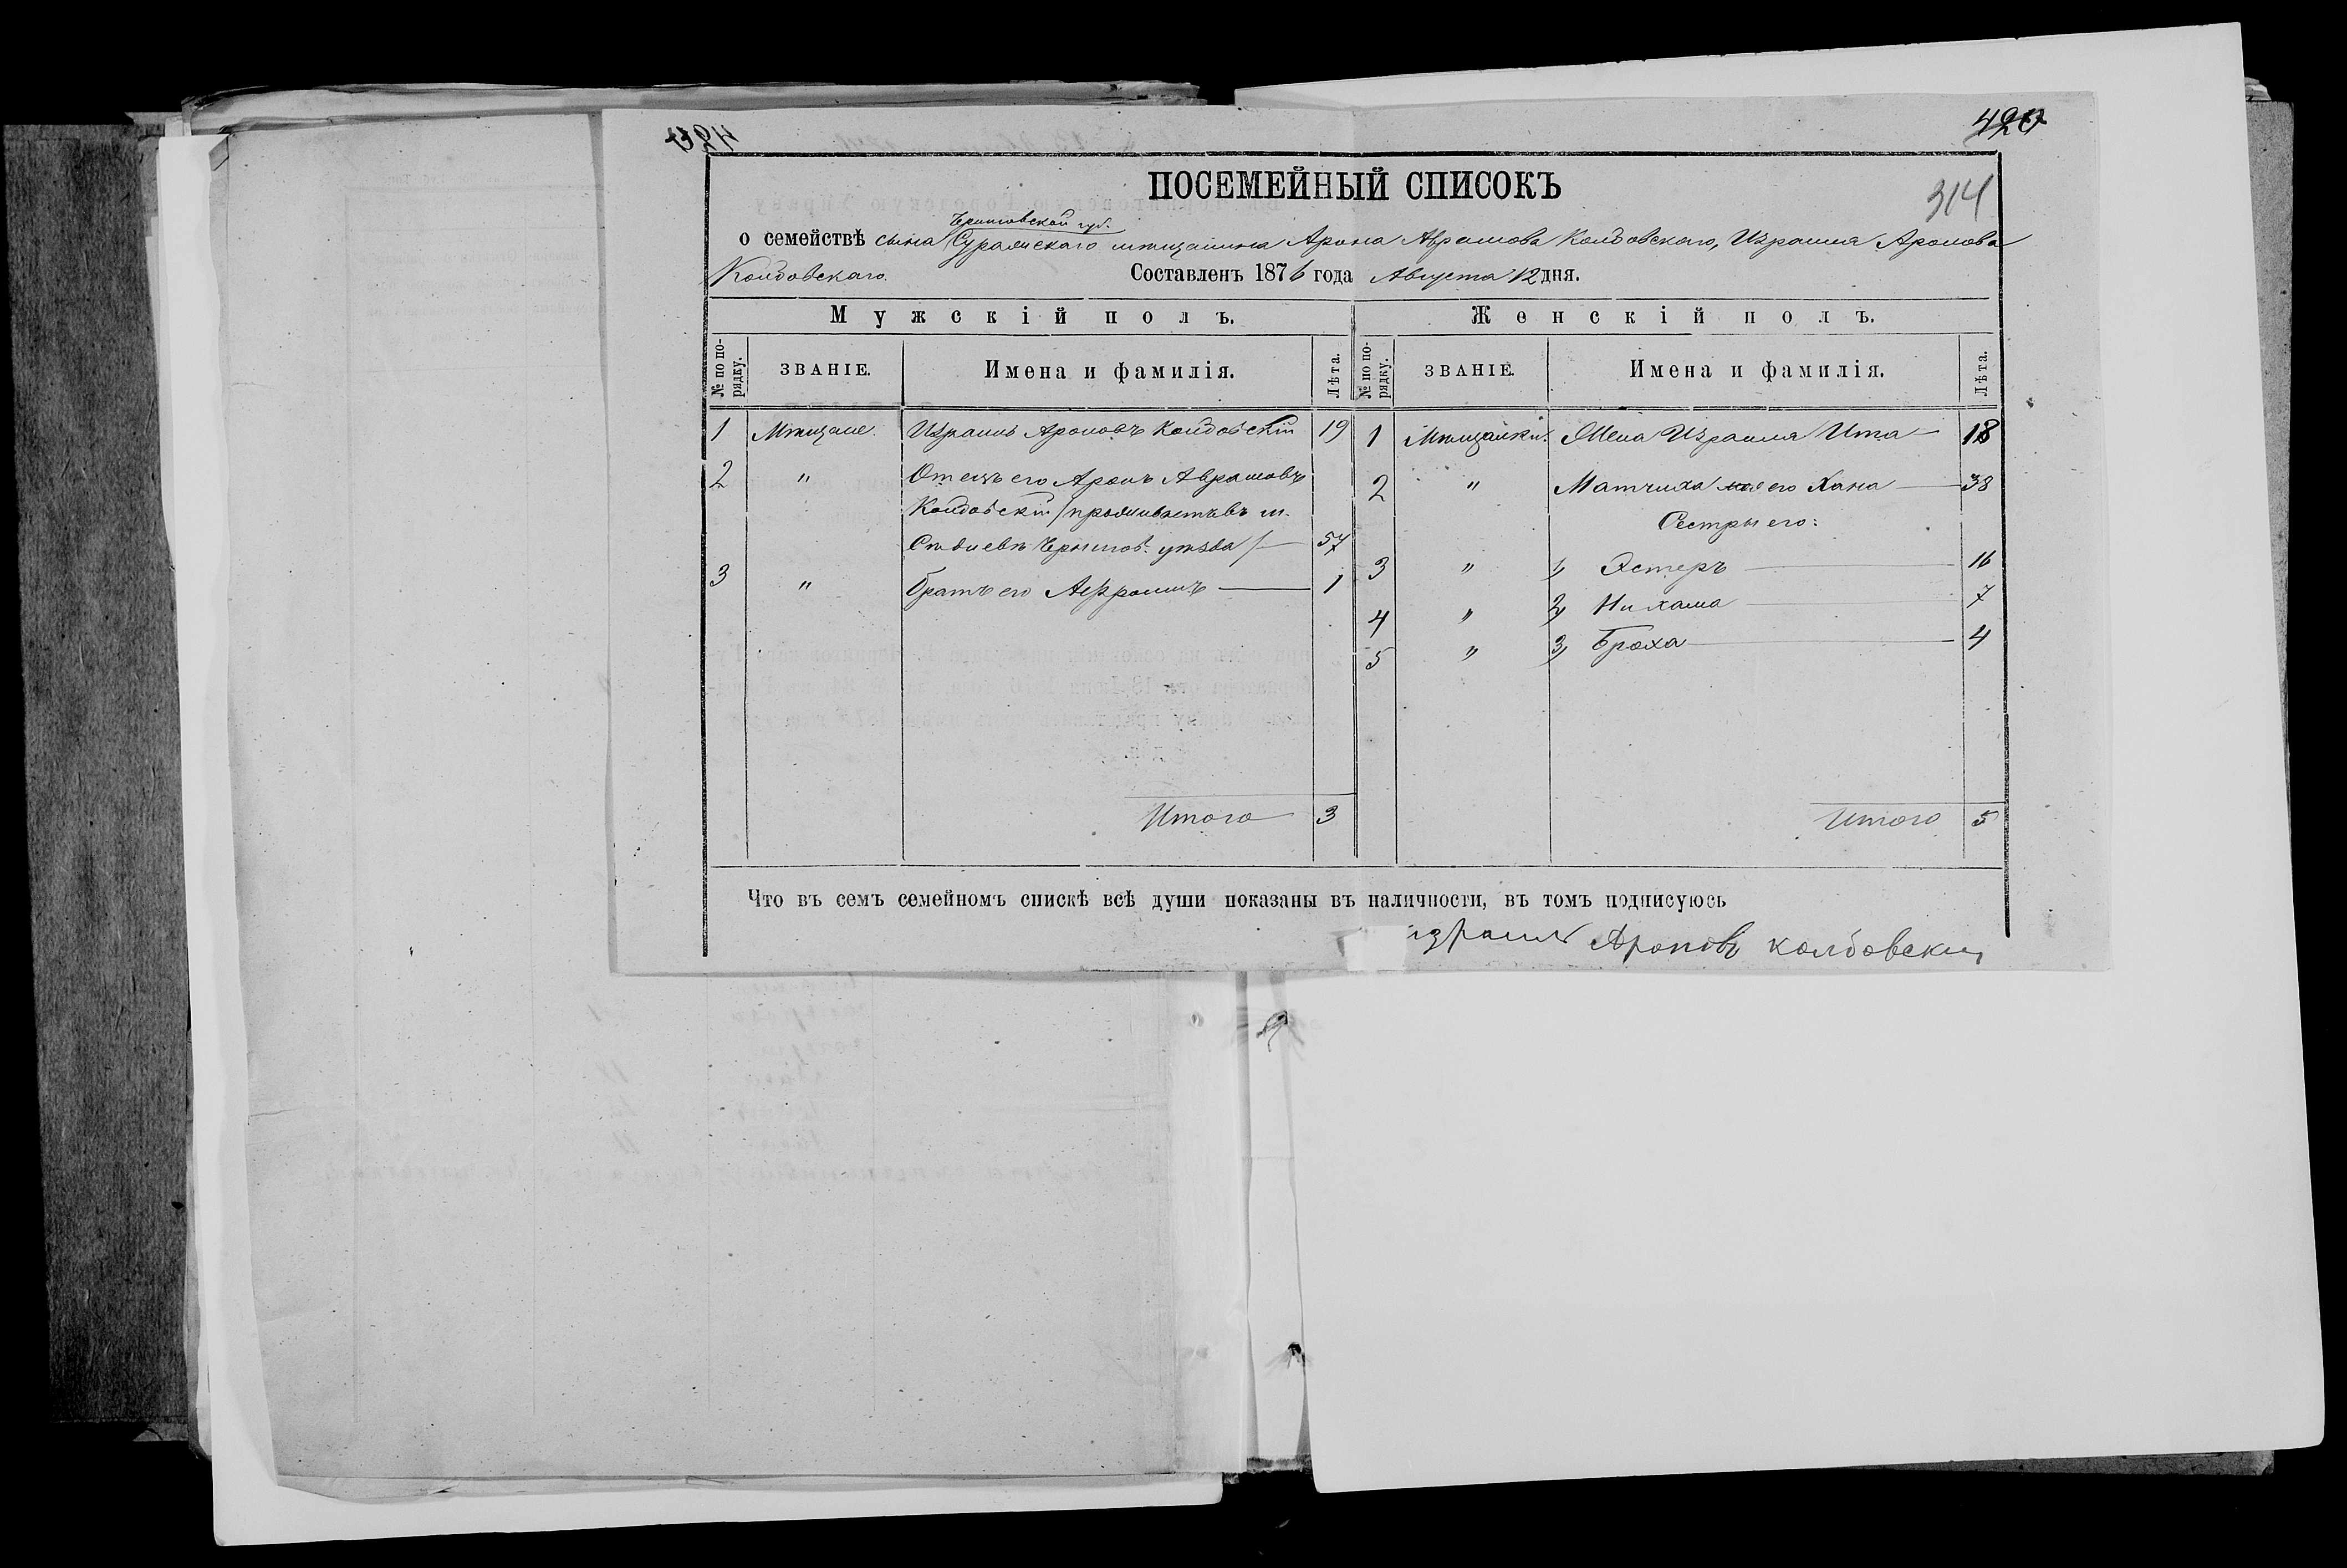 420
314
ПОСЕМЕЙНЫЙ СПИСОКЪ
Черниговской губ.
о семействѣ сына Суражскаго мѣщанина Арона Аврамова Колдовскаго, Израиля Аронова
Колдовскаго. Составленъ 1876 года Августа 12 дня.
Мужскій полъ. Женскій полъ.
№ по по-рядку. ЗВАНІЕ. Имена и фамилія. Лѣта. № по по-рядку. ЗВАНІЕ. Имена и фамилія. Лѣта.
1 Мѣщане. Израиль Ароновъ Колдовскій 19
2 " Отецъ его Аронъ Аврамовъ
Колдовскій /проживаетъ въ м.
Чернигов. уѣзда/ 57
3 " Братъ его Авраамъ 1
Итого 3
1 Мѣщанки. Жена Израиля Ита 18
2 " Матчиха его Хана 38
Сестры его:
3 " 1, Эстеръ 16
4 " 2, Нихама 7
5 " 3, Броха 4
Итого 5
Что въ семъ семейномъ спискѣ всѣ души показаны въ наличности, въ томъ подписуюсь
израиль Ароновъ колдовский